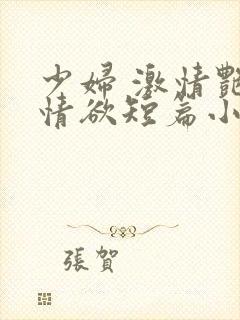 少婦激情艷
情欲短篇小
張賀